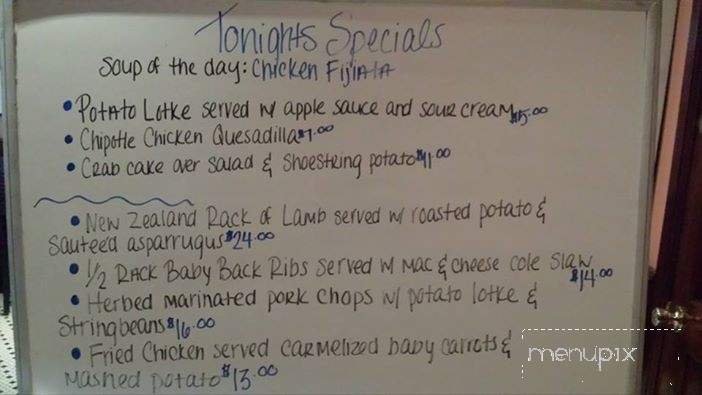 Tonights Specials
Soup of the day: Chicken Fijiata
• Potato Lotke served w/ apple sauce and sour cream $5.00
• Chipotle Chicken Quesadilla $7.00
• Crab cake over salad & shoestring potato $11.00
• New Zealand Rack of Lamb served w/ roasted potato &
sauteed asparrugus $24.00
• 1/2 Rack Baby Back Ribs served w/ Mac & cheese cole slaw
$14.00
• Herbed marinated pork chops w/ potato lotke &
stringbeans $16.00
• Fried Chicken served carmelized baby carrots &
mashed potato $13.00
menupix